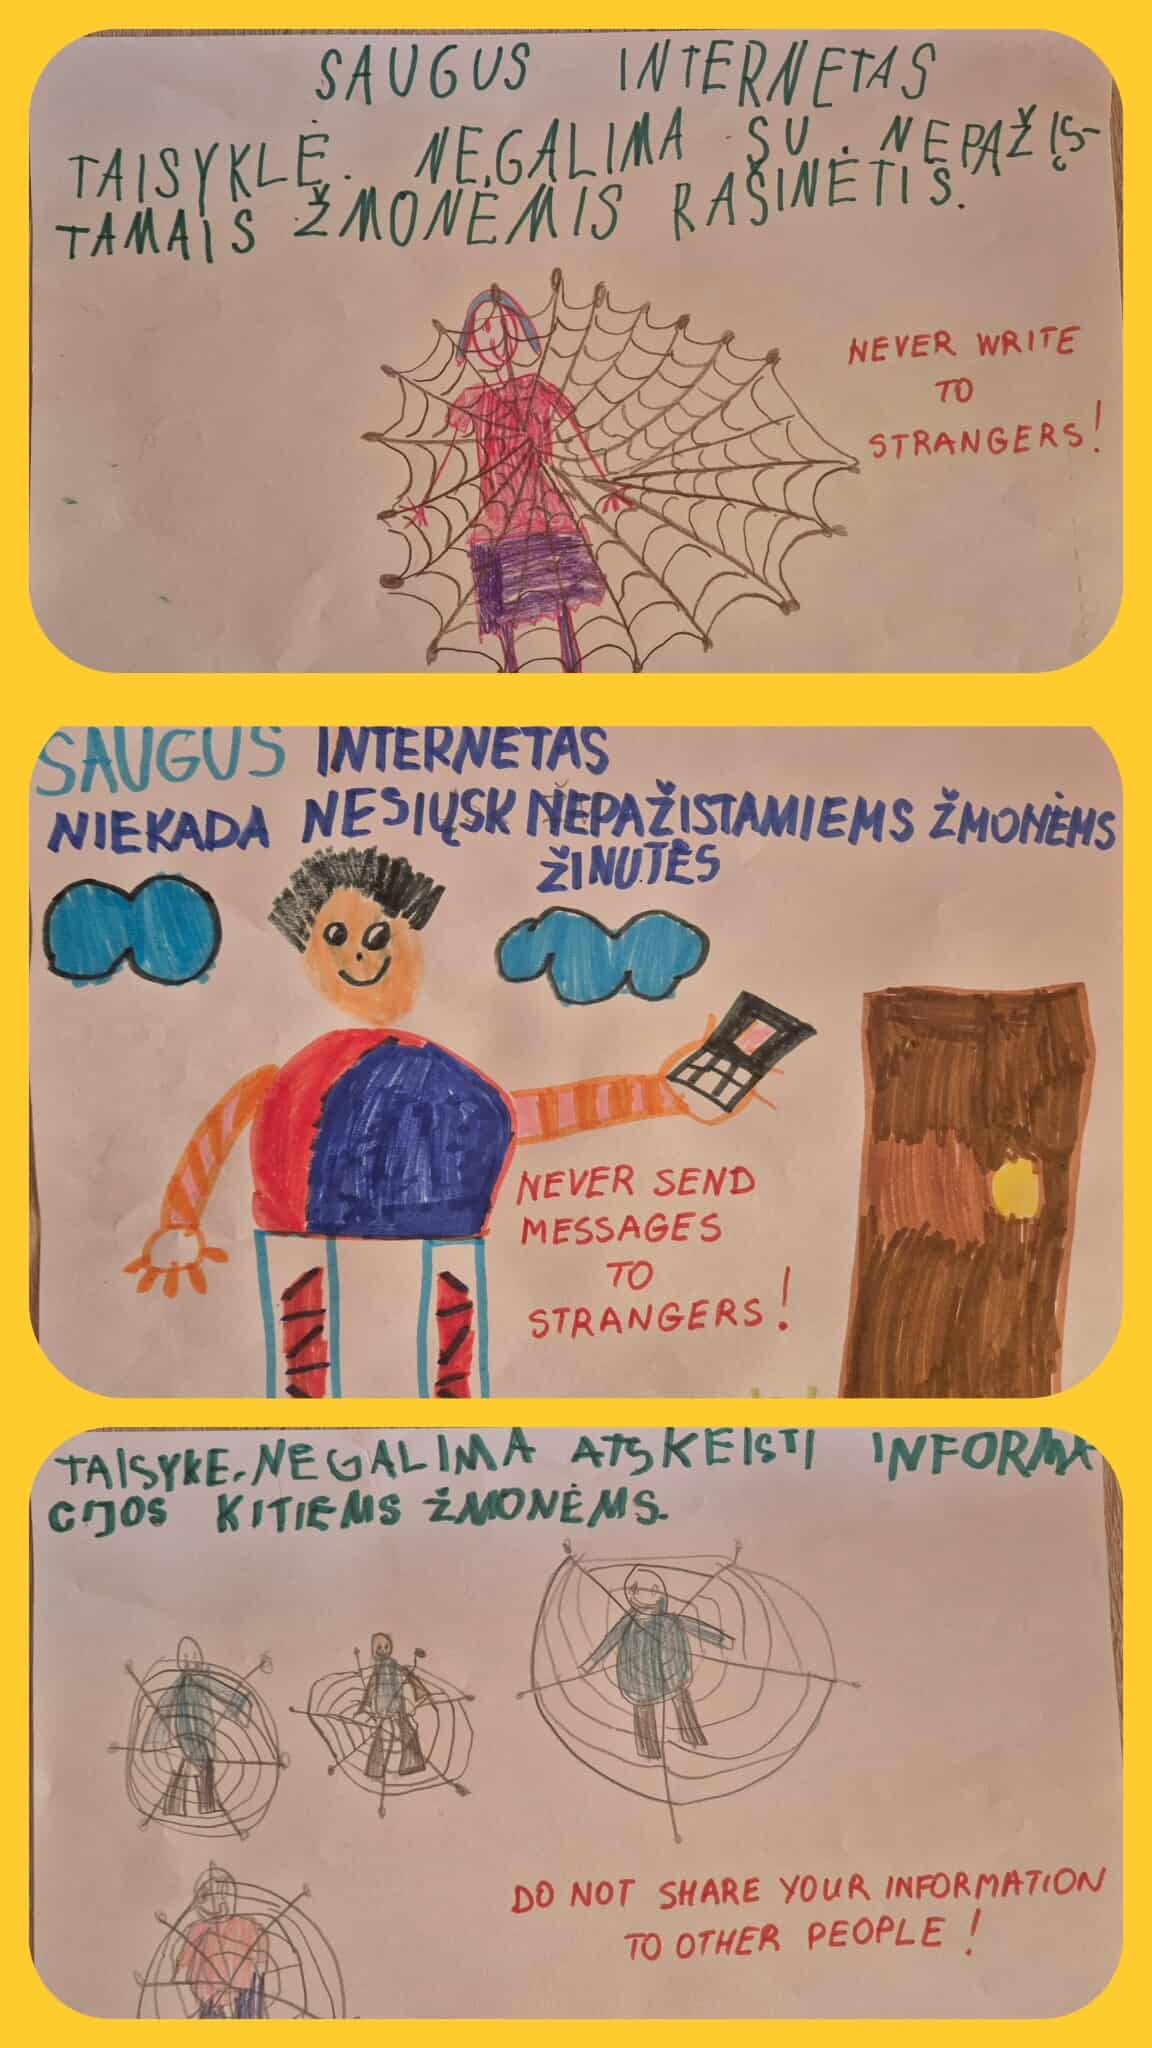 SAUGUS INTERNETAS
TAISYKLĖ. NEGALIMA SU NEPAŽĮS-
TAMAIS ŽMONĖMIS RAŠINĖTIS.
NEVER WRITE
TO
STRANGERS!
SAUGUS INTERNETAS
NIEKADA NESIŲSK NEPAŽISTAMIEMS ŽMONĖMS
ŽINUTĖS
NEVER SEND
MESSAGES
TO
STRANGERS!
TAISYKE. NEGALIMA ATSKEISTI INFORMA
CIJOS KITIEMS ŽMONĖMS.
DO NOT SHARE YOUR INFORMATION
TO OTHER PEOPLE!